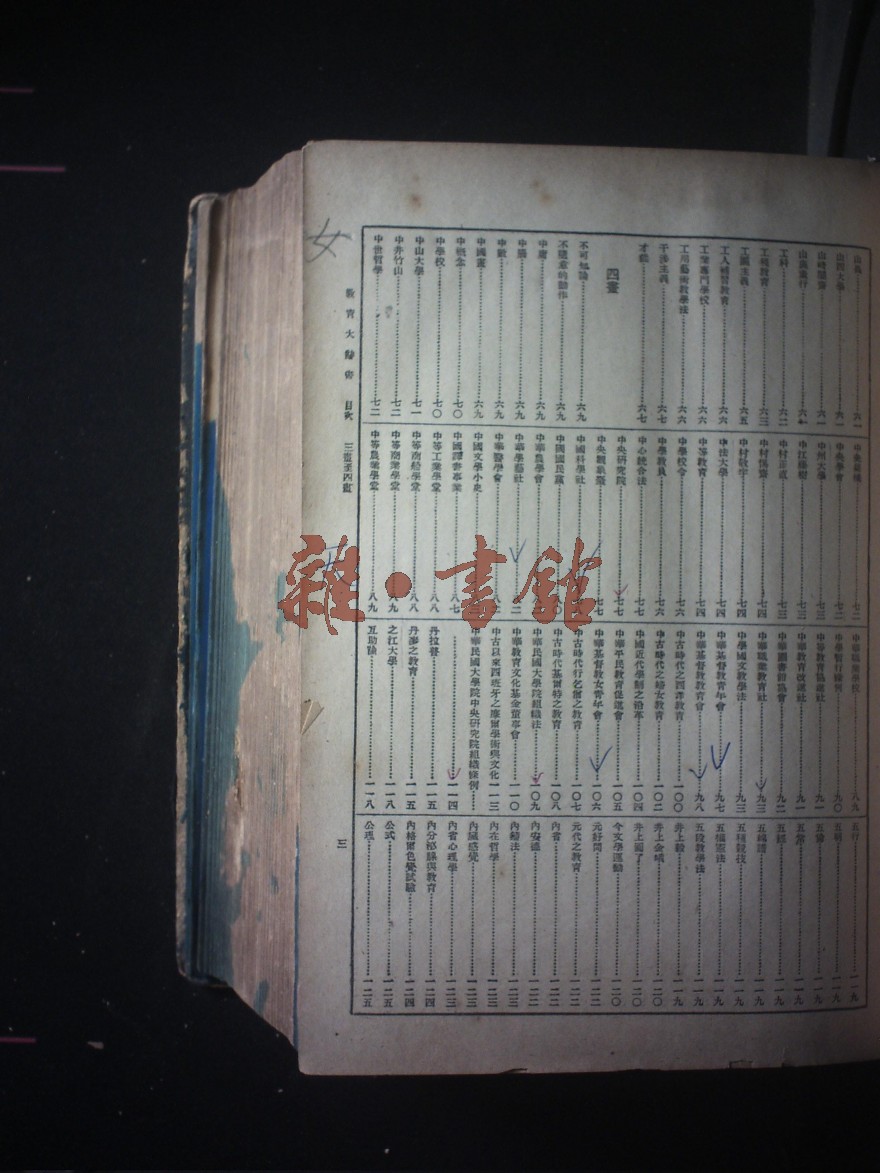 山鹿⋯六一
山西大學⋯六一
山崎闇齋⋯六一
山鹿素行⋯六一
工科⋯六二
工場教育⋯六三
工讀主義⋯六五
工人補習教育⋯六六
工業專門學校⋯六六
工用藝術教學法⋯六六
干涉主義⋯六七
才能⋯六七
四畫
不可知論⋯六九
不隨意的動作⋯六九
中庸⋯六九
中腦⋯六九
中數⋯六九
中國畫⋯六九
中概念⋯七〇
中學校⋯七〇
中山大學⋯七一
中井竹山⋯七二
中世哲學⋯七二
中央學會⋯七二
中州大學⋯七三
中江藤樹⋯七三
中村正直⋯七三
中村惕齋⋯七四
中村敬宇⋯七四
中法大學⋯七四
中等教育⋯七四
中學校令⋯七六
中學教員⋯七六
中心統合法⋯七七
中央研究院⋯七七
中央觀象臺⋯七七
中國科學社
中國國民黨
中華農學會
中華學藝社
中華醫學會
中國文學小史
中國譯書事業⋯八七
中等工業學堂⋯八八
中等商船學堂⋯八八
中等商業學堂⋯八九
中等農業學堂⋯八九
中華職業學校⋯八九
中學暫行條例⋯九〇
中等教育協進社⋯九一
中華教育改進社⋯九一
中華圖書館協會⋯九二
中華職業教育社⋯九三
中學國文教學法⋯九三
中華基督教青年會⋯九七
中華基督教教育會⋯九八
中古時代之回津教育⋯一〇〇
中古時代之婦女教育⋯一〇二
中國近代學制之沿革⋯一〇四
中華平民教育促進會⋯一〇五
中華基督教女青年會⋯一〇六
中古時代行乞團之教育⋯一〇七
中古時代基爾特之教育⋯一〇八
中華民國大學院組織法⋯一〇九
中華教育文化基金董事會⋯一一〇
中古以來西班牙之摩爾學術與文化⋯一一三
中華民國大學院中央研究院組織條例⋯
⋯一一四
丹拉普⋯一一五
丹麥之教育⋯一一五
之江大學⋯一一八
互助論⋯一一八
五行⋯一一九
五明⋯一一九
五倫⋯一一九
五常⋯一一九
五經⋯一一九
五種遺規⋯一一九
五權憲法⋯一一九
五段教學法⋯一一九
井上毅⋯一一九
井上金峨⋯一二〇
井上圓了⋯一二〇
今文學運動⋯一二〇
元好問⋯一二二
元代之教育⋯一二二
內省⋯一二二
內安德⋯一二二
內籀法⋯一二三
內在哲學⋯一二三
內臟感覺⋯一二三
內省心理學⋯一二三
內分泌腺與教育⋯一二四
內格爾色覺試驗⋯一二四
公式⋯一二五
公理⋯一二五
教育大辭書 目次 三畫至四畫
三
女
雜·書館